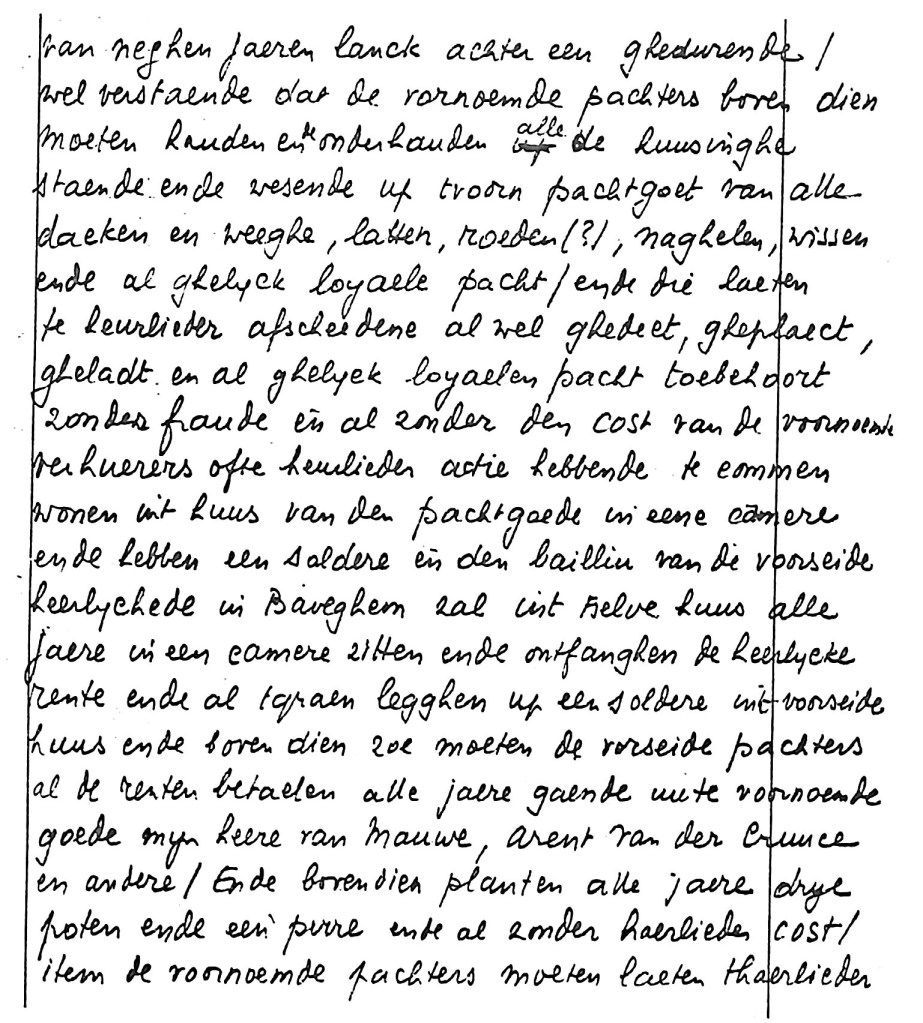 van neghen jaeren lanck achter een ghedurende /
wel verstaende dat de vornoemde pachters boven dien
moeten hauden ende onderhauden alle de huusinghe
staende ende wesende up tvoorn pachtgoet van alle
daeken en weeghe, latten, roeden (?), naghelen, wissen
ende al ghelyck loyaele pacht / ende die laeten
te heurlieder afscheedene al wel ghedect, gheplaect,
gheladt en al ghelyck loyaelen pacht toebehoort
zonder fraude en al zonder den cost van de voornoemde
verhuerers ofte heurlieder actie hebbende te commen
wonen int huus van den pachtgoede in eene camere
ende hebben een soldere en den bailliu van de voorseide
heerlychede in Baveghem zal int selve huus alle
jaere in een camere zitten ende ontfanghen de heerlycke
rente ende al tgraen legghen up een soldere int voorseide
huus ende boven dien zoe moeten de vorseide pachters
al de renten betaelen alle jaere gaende uute voornoemde
goede myn heere van Mauwe, Arent van der Cruuce
en andere / Ende bovendien planten alle jaere drye
poten ende een perre ente al zonder haerlieder cost /
item de voornoemde pachters moeten laeten thaerlieder